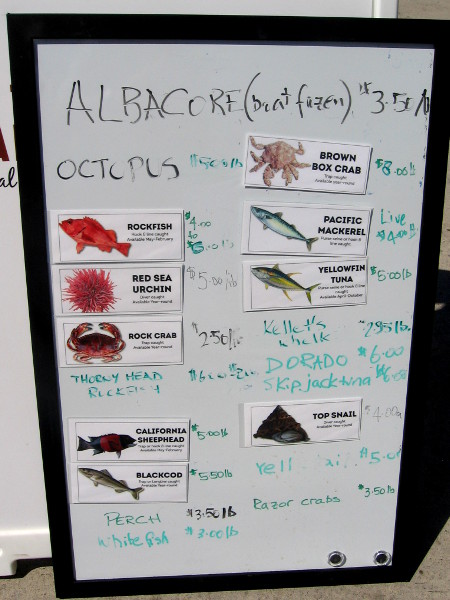 ALBACORE (boat frozen) $3.50/lb
OCTOPUS $5.00 lb
BROWN
BOX CRAB
Trap caught
Available year-round
$8.00 lb
ROCKFISH
Hook & line caught
Available May-February
$4.00
to
PACIFIC
MACKEREL
Purse seine or hook & line
caught
Available year-round
Live
$4.00
RED SEA
URCHIN
Diver caught
Available Year-round
$5.00/lb
YELLOWFIN
TUNA
Purse seine or hook & line
caught
Available April-October
$5.00 lb
ROCK CRAB
Trap caught
Available Year-round
Kellet's
whelk
295 lb.
THORNY HEAD
ROCKFISH
DORADO $6.00
Skipjack tuna
CALIFORNIA
SHEEPHEAD
Trap or hook & line caught
Available May-February
$5.00 lb
TOP SNAIL
Diver caught
Available Year-round
BLACKCOD
Available Year-round
$5.50 lb
Yell
PERCH $3.50 lb
Razor crabs $3.50 lb
White fish $3.00 lb
al